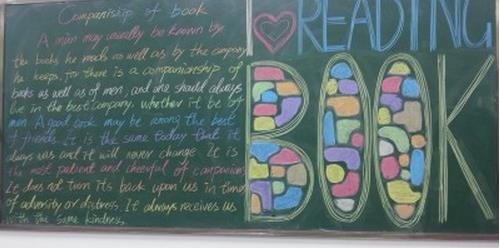 Companiship of book
A man may usually be known by
the books he reads as well as by the company
he keeps, for there is a companionship of
books as well as of men, and one should always
live in the best company, whether it be of
men. A good book may be among the best
of friends. It is the same today that it
always was and it will never change. It is
the most patient and cheerful of companions
It does not turn its back upon us in times
of adversity or distress. It always receives us
with the same kindness.
READING
BOOK